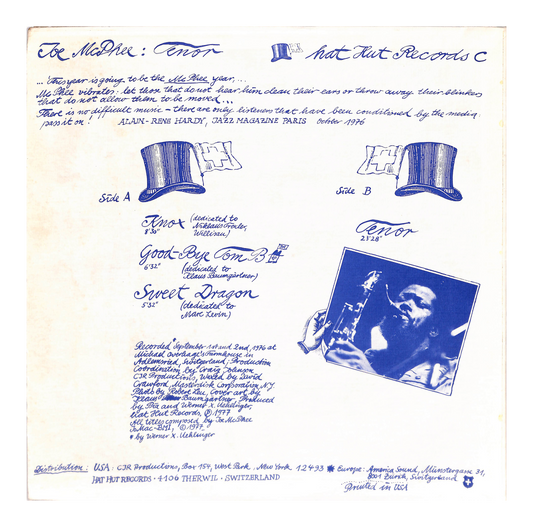 Joe McPhee: Tenor
hat Hut Records C
... This year is going to be the McPhee year...
McPhee vibrates: let those that do not hear him clean their ears or throw away their blinkers
that do not allow them to be moved...
There is no difficult music – there are only listeners that have been conditioned by the media:
pass it on!
ALAIN-RENÉ HARDY, JAZZ MAGAZINE PARIS October 1976
Side A
Knox (dedicated to
Niklaus Troxler,
Willisau)
8'30"
Good-Bye Tom B.
6'32" (dedicated to
Klaus Baumgärtner)
Sweet Dragon
5'32" (dedicated to
Marc Levin)
Side B
Tenor
23'28"
Recorded* September 1st and 2nd, 1976 at
Michael Overhage's farmhouse in
Adlemsried, Switzerland; Production
Coordination by Craig Johnson
CJR Productions, Waxed by David
Crawford, Masterdisk Corporation N.Y.
Photo by Robert Leu, Cover art by
Klaus Baumgärtner, Produced
by Pia and Werner X. Uehlinger,
Hat Hut Records, Ⓟ 1977
All titles composed by Joe McPhee
JoMac-BMI, © 1977
* by Werner X. Uehlinger
Distribution: USA: CJR Productions, Box 154, West Park, New York 12493 * Europe: America Sound, Münstergasse 31,
8001 Zürich, Switzerland
HAT HUT RECORDS · 4106 THERWIL · SWITZERLAND
Printed in USA